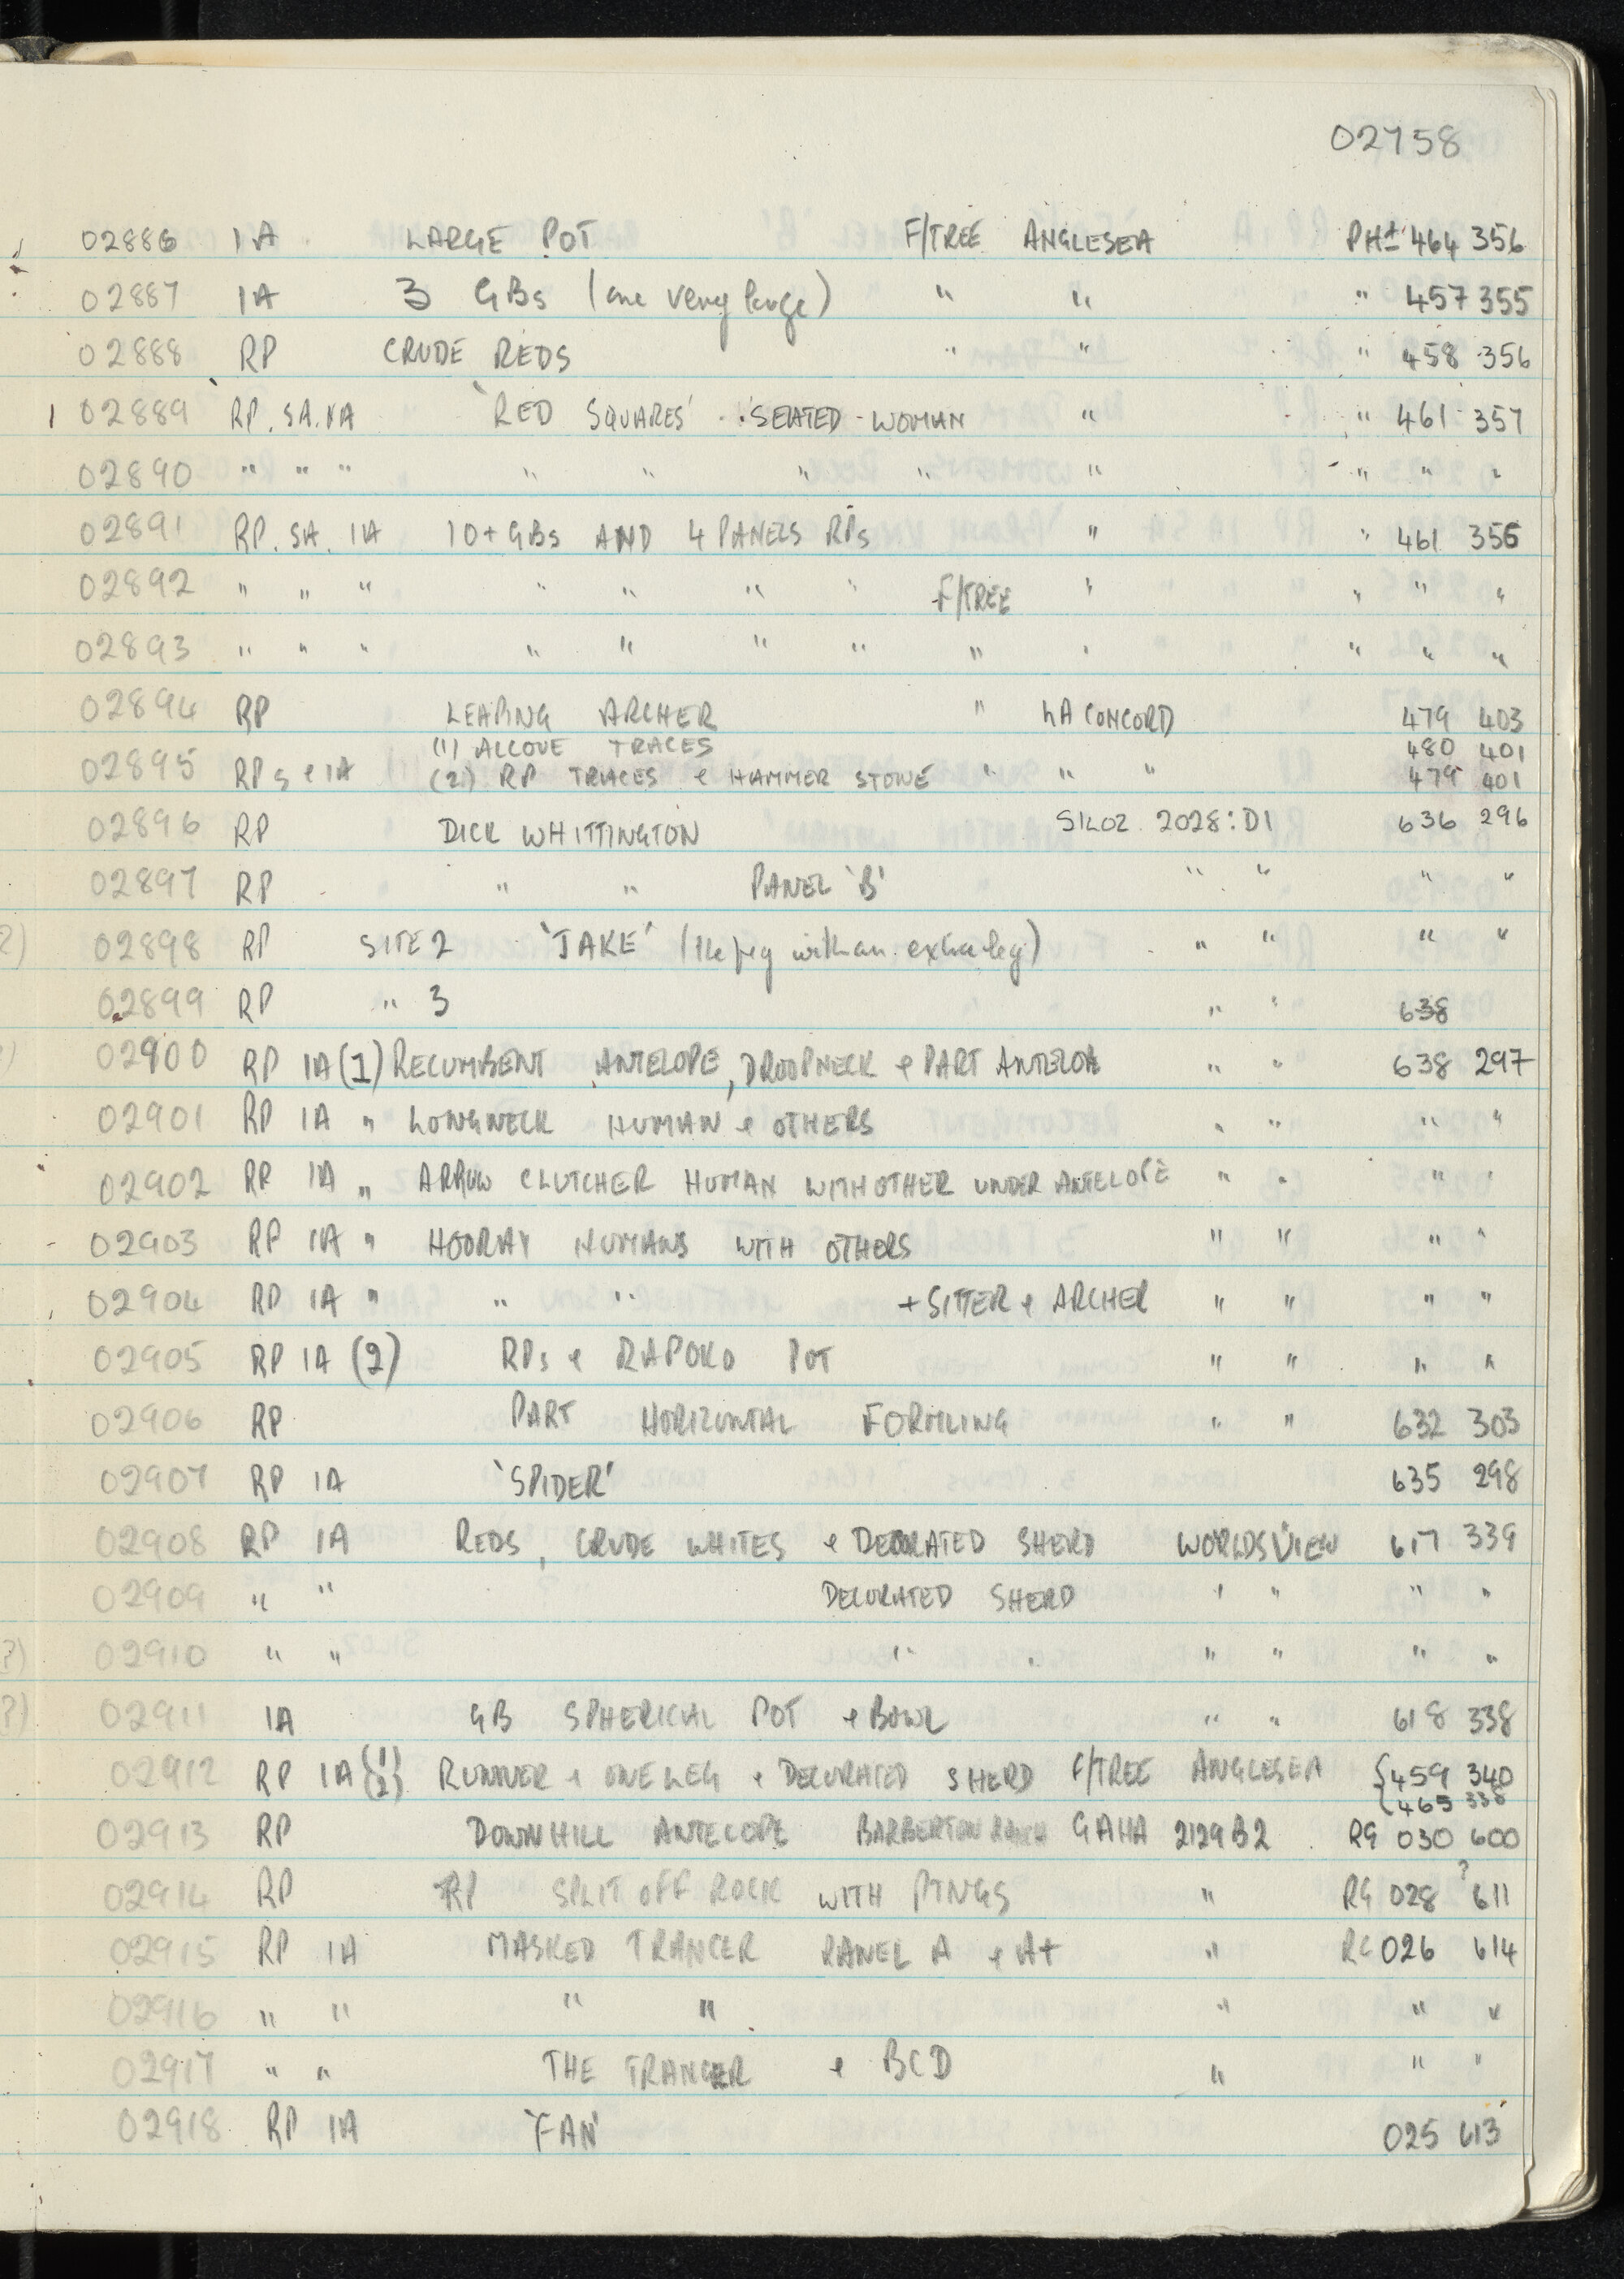 02758
02886 IA LARGE POT F/TREE ANGLESEA PH± 464 356
02887 IA 3 GBs (one very large) " " " 457 355
02888 RP CRUDE REDS " " " 458 356
02889 RP. SA. IA 'RED SQUARES' 'SEATED WOMAN " " 461 357
02890 " " " " " " " " " " "
02891 RP. SA. IA 10+GBs AND 4 PANELS RPs " " 461 356
02892 " " " " " " " F/TREE " " " "
02893 " " " " " " " " " " " "
02894 RP LEAPING ARCHER " LA CONCORD 479 403
(1) ALCOVE TRACES 480 401
02895 RPs & IA (2) RP TRACES & HAMMER STONE " " " 479 401
02896 RP DICK WHITTINGTON SILOZ 2028:D1 636 296
02897 RP " " PANEL 'B' " " " "
02898 RP SITE 2 'JAKE' (the peg with an extra leg) " " " "
02899 RP " 3 " " 638
02900 RP IA (1) RECUMBENT ANTELOPE, DROOPNECK & PART ANTELOPE " " 638 297
02901 RP IA " LONGNECK HUMAN & OTHERS " " " "
02902 RP IA " ARROW CLUTCHER HUMAN WITH OTHER UNDER ANTELOPE " " " "
02903 RP IA " HOORAY HUMANS WITH OTHERS " " " "
02904 RP IA " " " + SITTER & ARCHER " " " "
02905 RP IA (2) RPs & RAPOKO POT " " " "
02906 RP PART HORIZONTAL FORMLING " " 632 303
02907 RP IA 'SPIDER' 635 298
02908 RP IA REDS, CRUDE WHITES & DECORATED SHERD WORLDSVIEW 617 339
02909 " " DECORATED SHERD " " " "
02910 " " " " " " " "
02911 IA GB SPHERICAL POT & BOWL " " 618 338
02912 RP IA (1) (2) RUNNER & ONE LEG & DECORATED SHERD F/TREE ANGLESEA {459 340
{465 338
02913 RP DOWNHILL ANTELOPE BARBERTON RANCH GAHA 2129B2 RG 030 600
02914 RP RP SPLIT OFF ROCK WITH PTNGS " RG 028 ?611
02915 RP IA MASKED TRANCER PANEL A & A+ " RG 026 614
02916 " " " " " " "
02917 " " THE TRANCER & BCD " " "
02918 RP IA 'FAN' 025 613